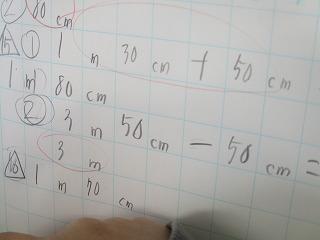 ② 80 cm
15 ① 1 m 30 cm + 50 cm
1 m 80 cm
② 3 m 50 cm - 50 cm =
3 m
16 1 m 50 cm